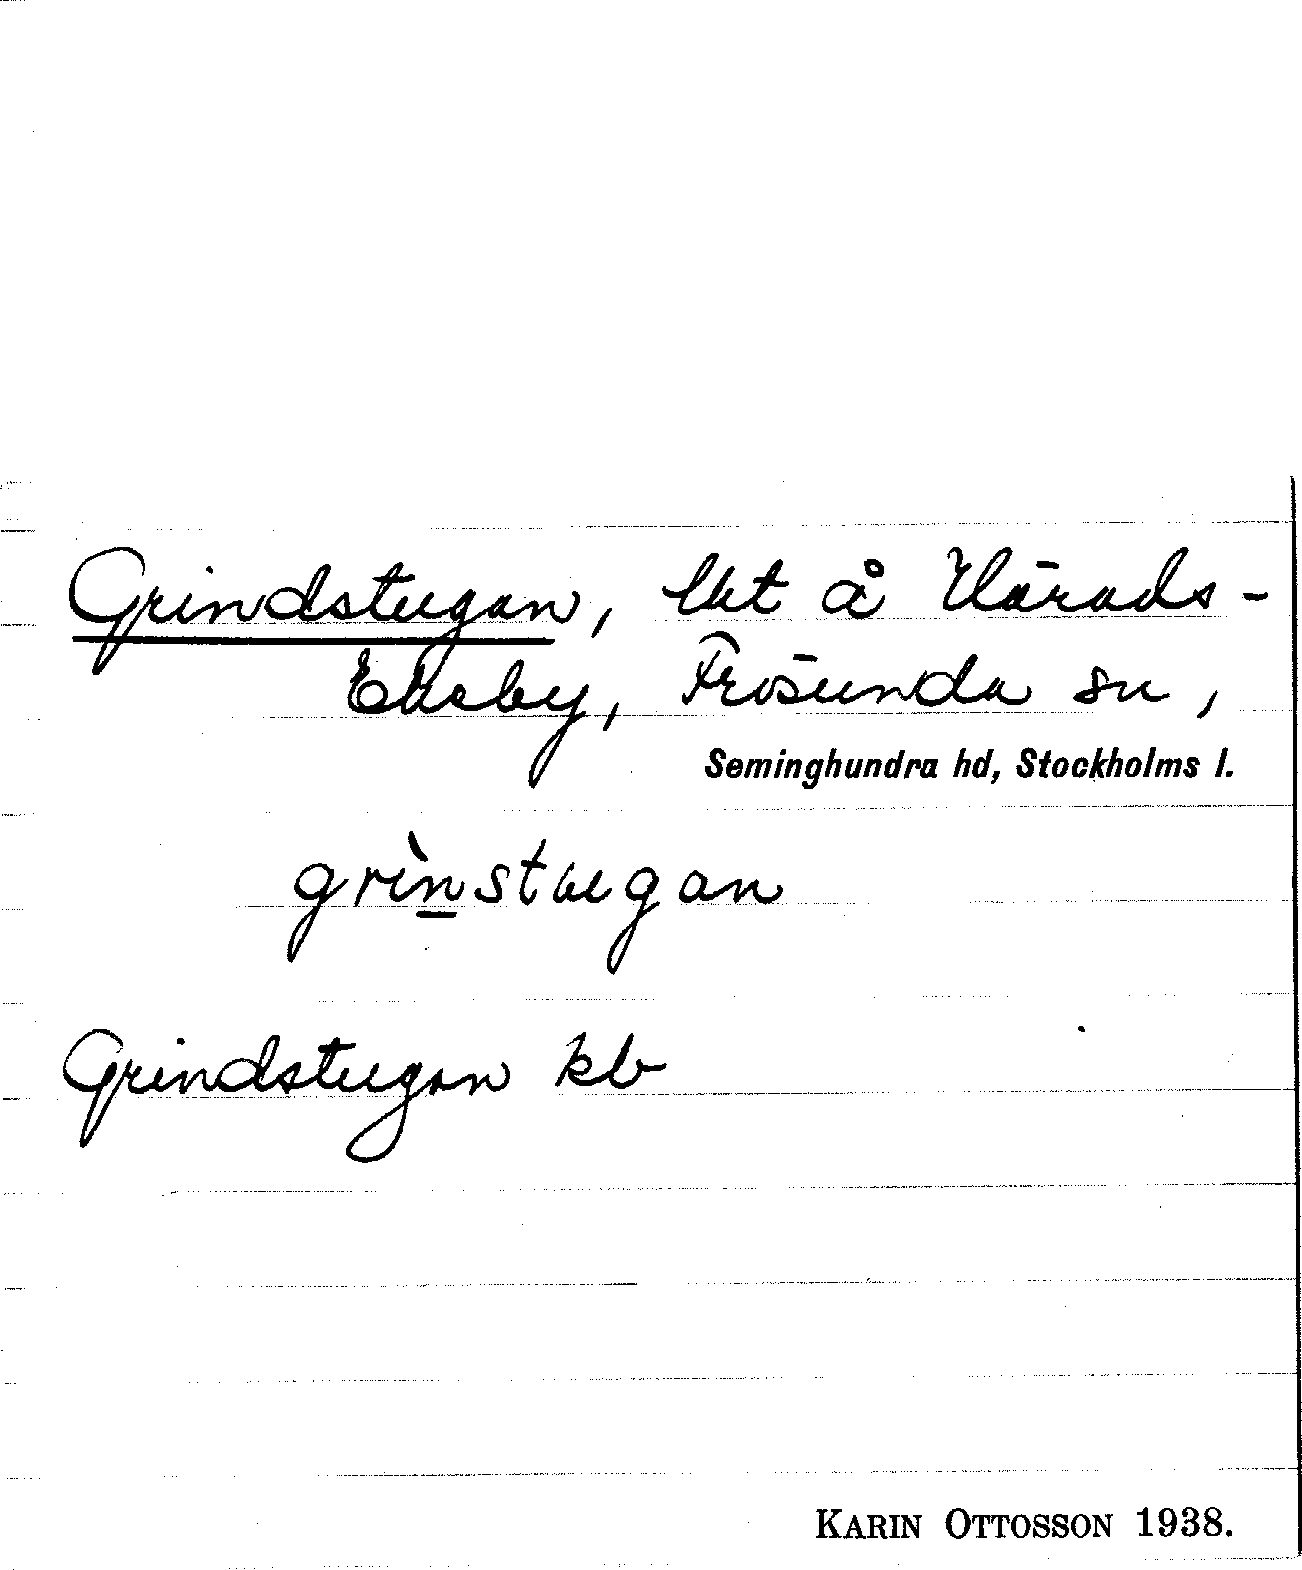 Grindstugan, lht å Härads-
Ekeby, Frösunda sn,
Seminghundra hd, Stockholms l.
grìn̲stugan
Grindstugan kb
KARIN OTTOSSON 1938.